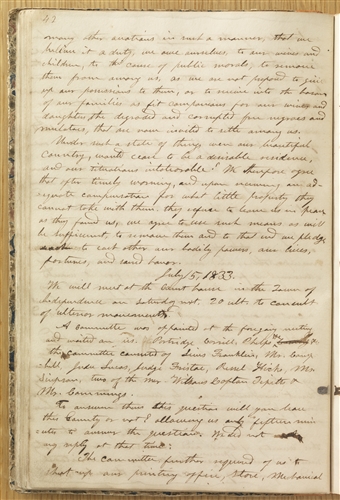 42
many other
in such a manner, that we
believe it a duty, we owe ourselves, to our wives and
children, to the cause of public morals, to remove
them from among us, as we are not prepared to give
up our possessions to them, or to receive into the bosom
of our families as fit companions for our wives and
daughters, the degraded and corrupted free negroes and
mulatoes, that are now invited to settle among us.
Under such a state of things, even our beautiful
Country, would cease to be a desirable residence,
and our situations intolerable! We therefore agree
that after timely warning, and upon receiving an ad-
equate compensation for what little property they
cannot take with them, they refuse to leave us in peace,
as they found us, we agree to use such means as will
be sufficient, to remove them and to that end we pledge
to each other our bodily powers, our lives,
fortunes, and sacred honor.
July 15, 1833.
We will meet at the Court house in the Town of
Independence on Saturday next, 20 ult. to consult
of ulterior movements.
A Committee was appointed at the foregoing meeting
and waited on us. Partridge, Corrill, Phelps &c
the Committee consisted of Lewis Franklin, Mr. Camp-
bill, Juda Lucas, Judge Fristoe, Russel Hicks, Mr.
Simpson, two of the Mr. Wilsons Captain Tipetts &
Mr. Cummings
To answer them this question will you leave
this County or not? allowing us only fifteen min-
utes to answer the question. We did not
any reply at that time.
The committee further required of us to
shut up our printing office, store, Mechanical